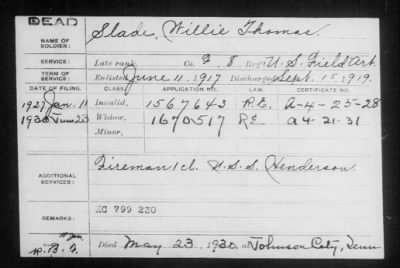 DEAD
NAME OF SOLDIER: Slade, Willie Thomas.
SERVICE: Late rank, Co. F, 8 Reg't U.S. Field Art.
TERM OF SERVICE: Enlisted June 11, 1917 Discharged Sept. 15, 1919.
DATE OF FILING. CLASS. APPLICATION NO. LAW. CERTIFICATE NO.
1927 Jan. 11 Invalid. 1567643 R.E. A-4-25-28
1930 Jun 23 Widow. 1670517 RE A4-21-31
Minor.
ADDITIONAL SERVICES: Fireman 1cl. U.S.S. Henderson.
REMARKS: XC 799 230
Died May 23, 1930 at Johnson City, Tenn